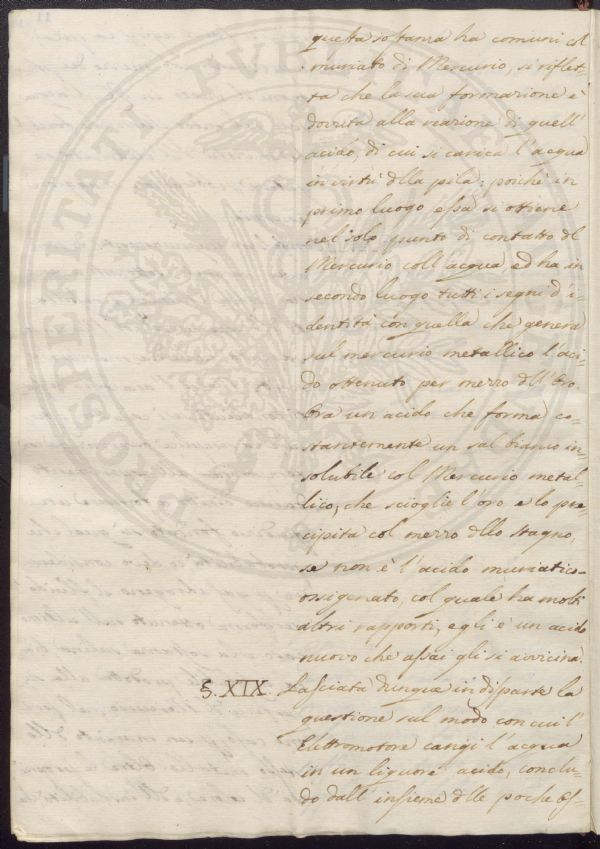 questa sostanza ha comuni col
muriato di Mercurio, si riflet-
ta che la sua formazione è
dovuta alla reazione di quell'
acido, di cui si carica l'acqua
in virtù dlla pila; poichè in
primo luogo essa si ottiene
nel solo punto di contatto dl
Mercurio coll'acqua, ed ha in
secondo luogo tutti i segni d'i-
dentità con quella che genera
sul mercurio metallico l'aci-
do ottenuto per mezzo dll'Oro.
Ora un acido che forma co-
stantemente un sal bianco in-
solubile col Mercurio metal-
lico, che scioglie l'oro e lo pre-
cipita col mezzo dllo stagno,
se non è l'acido muriatico-
ossigenato, col quale ha molti
altri rapporti, egli è un acido
nuovo che assai gli si avvicina.
§. XIX. Lasciata dunque in disparte la
questione sul modo con cui l'
Elettromotore cangi l'acqua
in un liquore acido, conclu-
do dall'insieme dlle poche es-
PROSPERITATI PVBLICAE